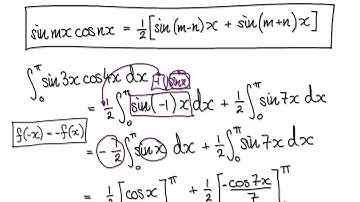 sin mx cos nx = 1/2 [sin(m-n)x + sin(m+n)x]
∫₀^π sin 3x cos 4x dx
= 1/2 ∫₀^π sin(-1)x dx + 1/2 ∫₀^π sin 7x dx
f(-x) = -f(x)
= -1/2 ∫₀^π sin x dx + 1/2 ∫₀^π sin 7x dx
= 1/2 [cos x]^π + 1/2 [-cos 7x / 7]^π